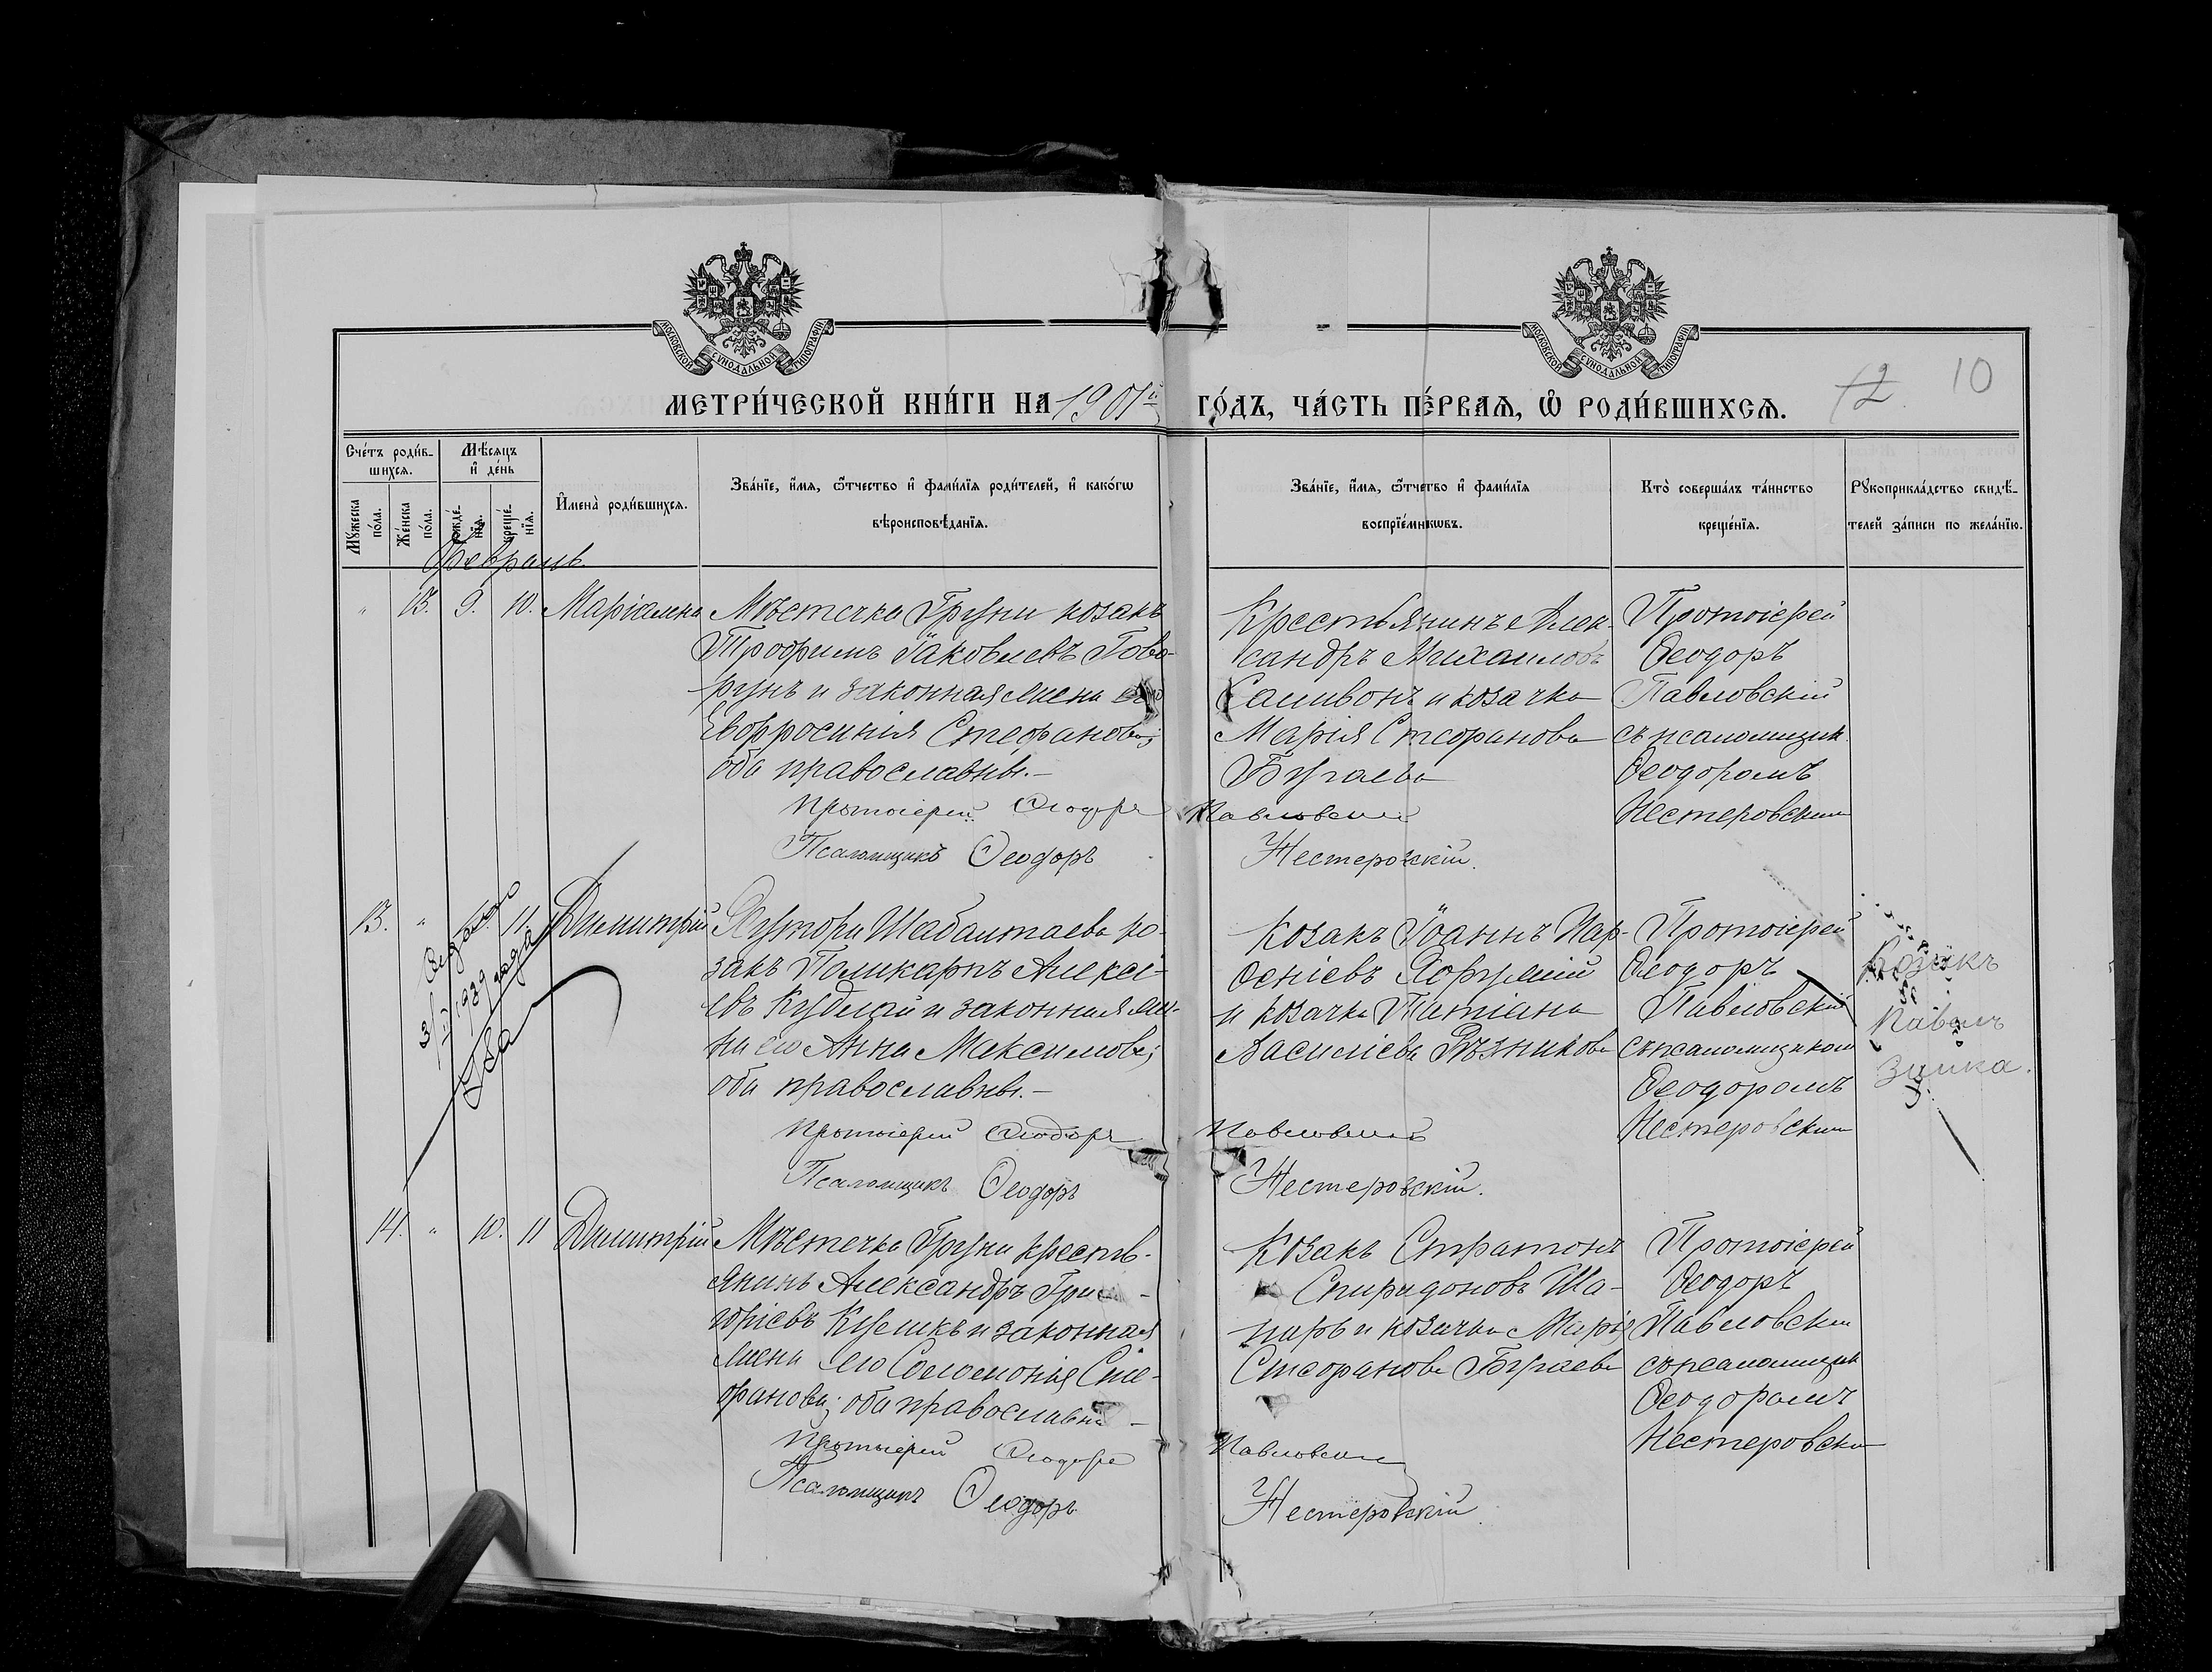 МОСКОВСКОЙ СУНОДАЛЬНОЙ ТИПОГРАФІИ
МОСКОВСКОЙ СУНОДАЛЬНОЙ ТИПОГРАФІИ
МЕТРИ́ЧЕСКОЙ КНИ́ГИ НА 1901й ГО́ДЪ, ЧА́СТЬ ПЕ́РВАЯ, Ѡ҆ РОДИ́ВШИХСѦ.
12 10
Сче́тъ роди́в-
шихсѧ.
Мꙋ́жеска по́ла.
Же́нска по́ла.
Мѣ́сѧцъ
и҆ де́нь
рожде́-
нїѧ.
креще́-
нїѧ.
И҆мена̀ роди́вшихсѧ.
Зва́нїе, и҆́мѧ, ѻ҆́тчество и҆ фами́лїѧ роди́телей, и҆ како́гѡ
вѣроисповѣ́данїѧ.
Зва́нїе, и҆́мѧ, ѻ҆́тчество и҆ фами́лїѧ
воспрїе́мникѡвъ.
Кто̀ соверша́лъ та́инство
креще́нїѧ.
Рꙋкоприкла́дство свидѣ́-
телей за́писи по жела́нїю.
Февраль
" 13. 9. 10. Маріамна
Мѣстечка Груни козакъ
Трофимъ Іаковлевъ Гово-
рунъ и законная жена его
Евфросинія Стефанова;
оба православны.–
Крестьянинъ Алек-
сандръ Михаиловъ
Саливонъ и козачка
Марія Стефанова
Бугаева
Протоіерей
Ѳеодоръ
Павловскій
съ псаломщик.
Ѳеодоромъ
Нестеровскимъ
Протоіерей Ѳеодоръ Павловскій
Псаломщикъ Ѳеодоръ Нестеровскій.
13. " 10. 11. Димитрій
3/ІІ 1939 года
Хутора Шабалтаева ко-
закъ Поликарпъ Алексі-
евъ Кудлай и законная же-
на его Анна Максимова;
оба православны.–
Козакъ Іоаннъ Пар-
ѳеніевъ
и козачка Татіана
Василіева Рѣзникова
Протоіерей
Ѳеодоръ
Павловскій
съ псаломщикомъ
Ѳеодоромъ
Нестеровскимъ
Козакъ
Павелъ
Заика.
Протоіерей Ѳеодоръ Павловскій
Псаломщикъ Ѳеодоръ Нестеровскій.
14. " 10. 11 Димитрій
Мѣстечка Груни кресть-
янинъ Александръ Гри-
горіевъ Куликъ и законная
жена его Соломонія Сте-
фанова; оба православны –
Козакъ Стратонъ
Спиридоновъ Ша-
паръ и козачка Марія
Стефанова Бугаева
Протоіерей
Ѳеодоръ
Павловскій
съ псаломщик
Ѳеодоромъ
Нестеровским
Протоіерей Ѳеодоръ Павловскій
Псаломщикъ Ѳеодоръ Нестеровскій.